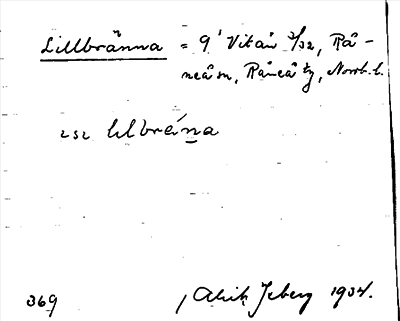 Lillbränna = 9' Vitån 2/32, Rå-
neå sn, Råneå tg, Norrb. l.
252 lılbreána
369 Alrik Isberg 1934.